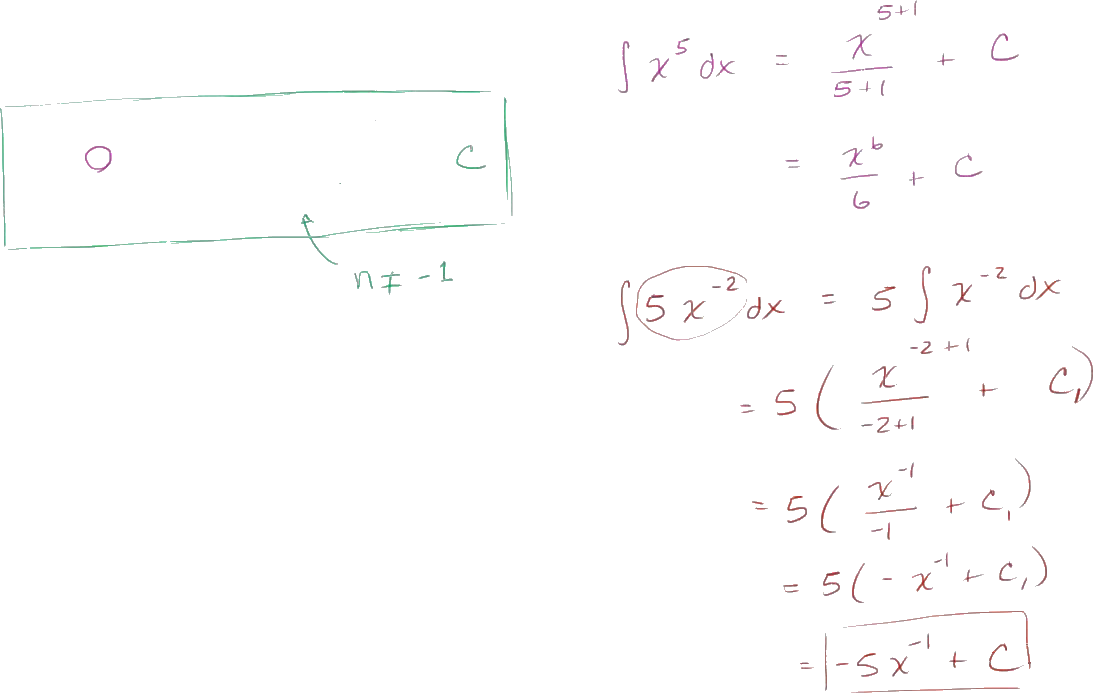 O C
n ≠ -1
∫ x⁵ dx = x⁵⁺¹/5+1 + C
= x⁶/6 + C
∫ 5 x⁻² dx = 5 ∫ x⁻² dx
= 5 ( x⁻²⁺¹/-2+1 + C₁)
= 5 ( x⁻¹/-1 + C₁)
= 5 ( - x⁻¹ + C₁)
= -5x⁻¹ + C